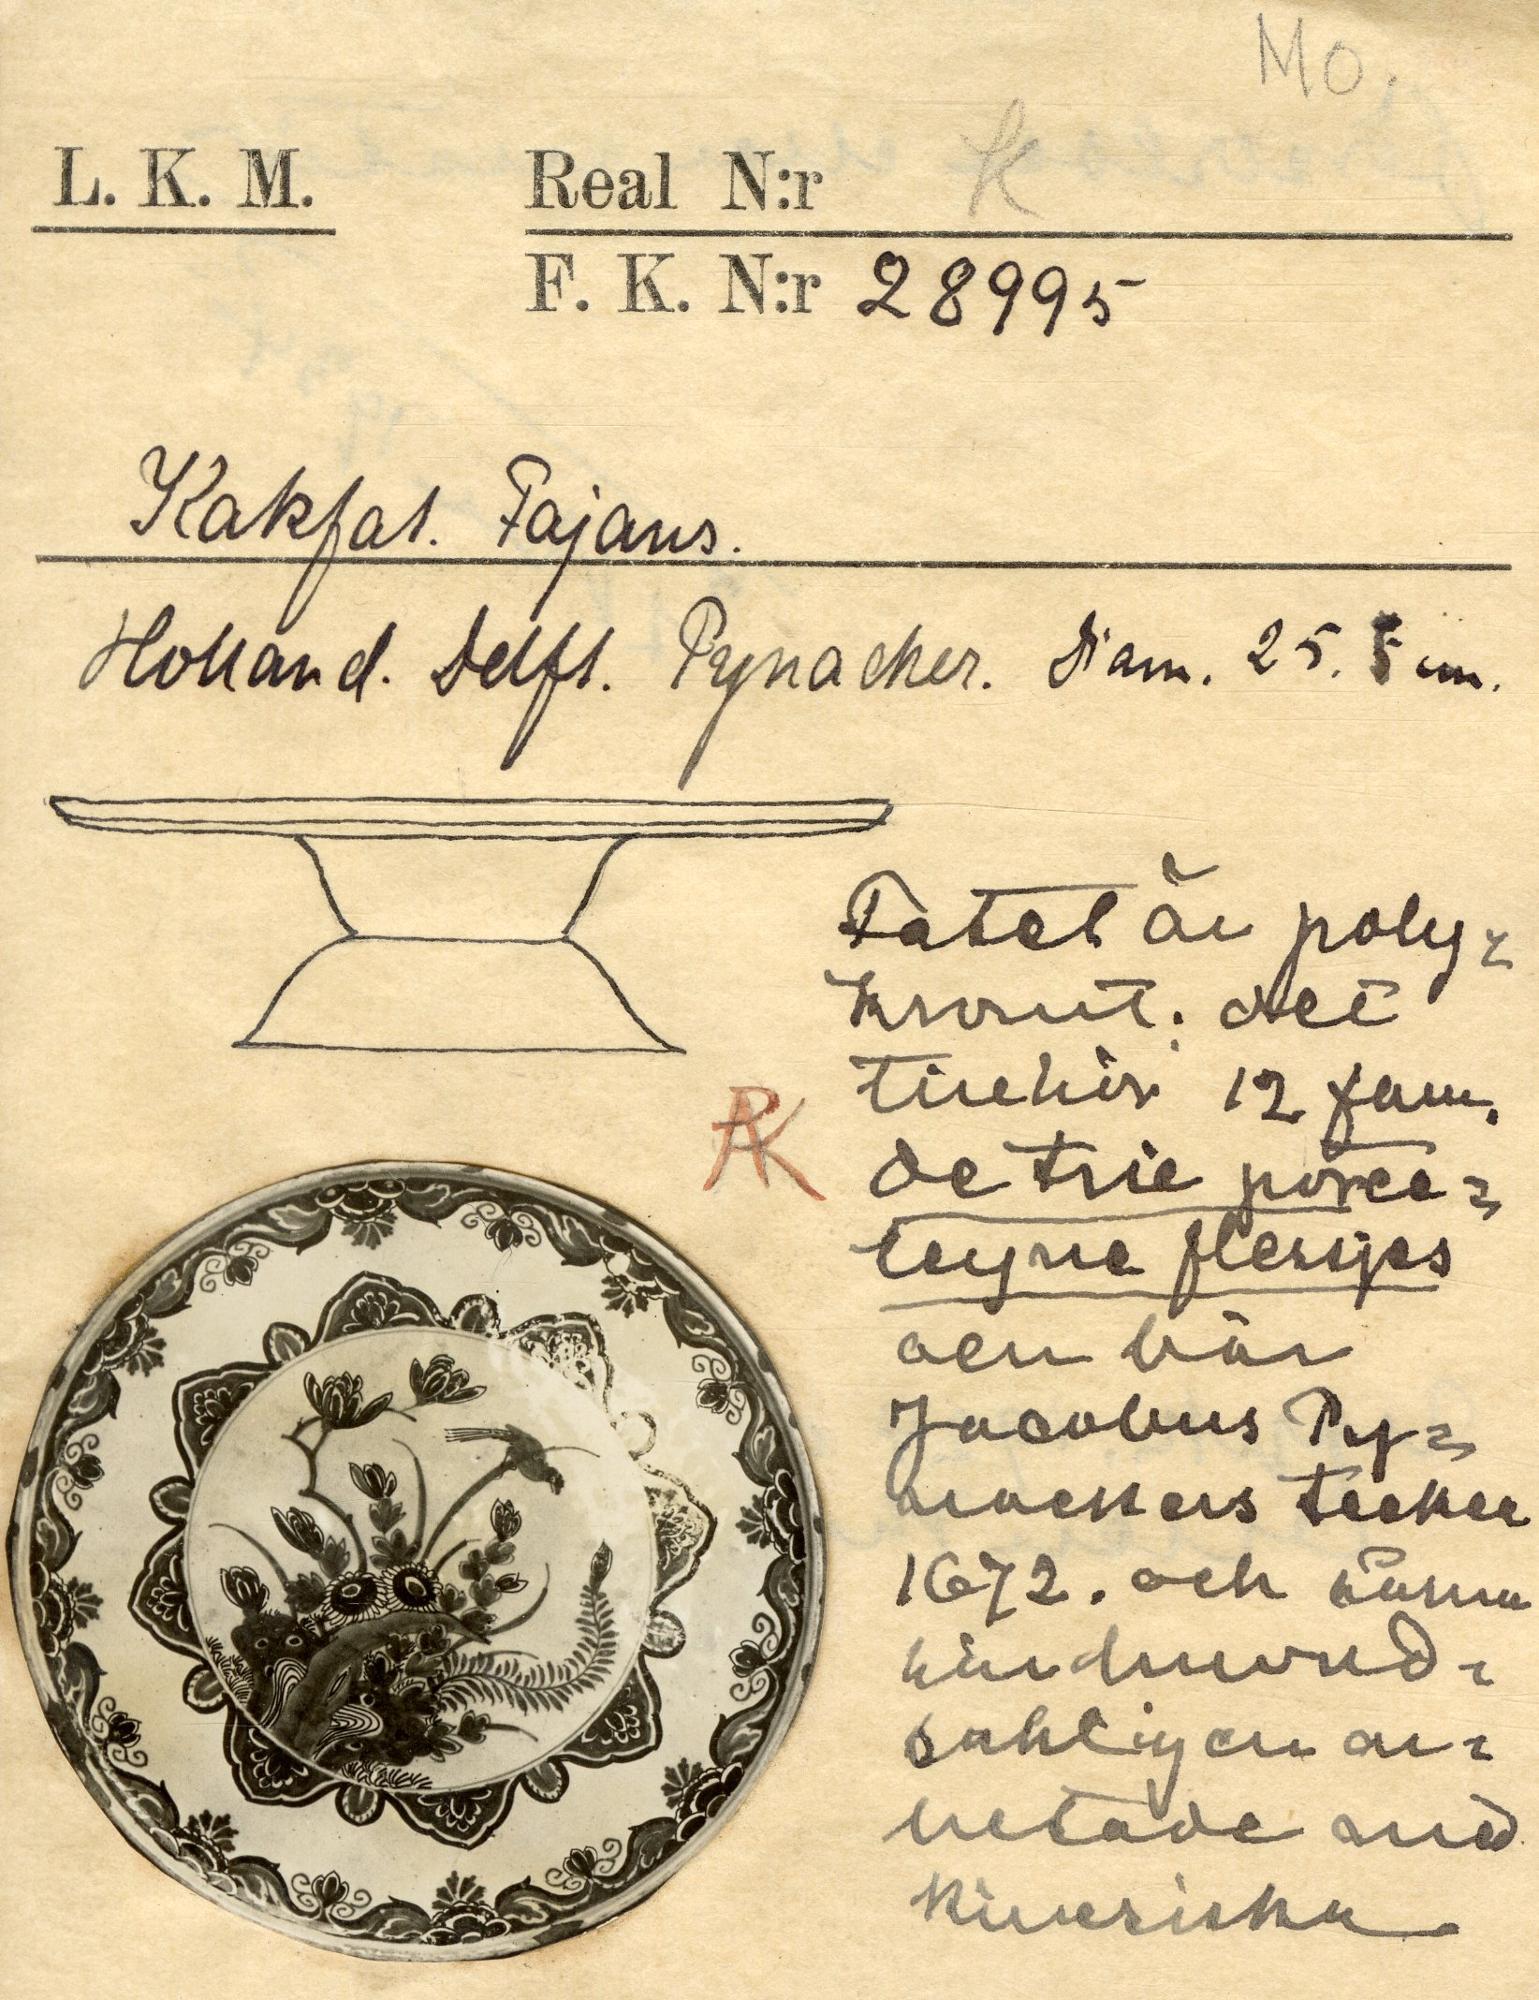 Mo.
L. K. M. Real N:r K
F. K. N:r 28995
Kakfat. Fajans.
Holland. Delft. Pynacker. Diam. 25.5 cm.
Fatet är poly=
kromt. det
tillhör 12 fam.
APK
de trie porce=
leyne flesjes
och bär
Jacobus Py=
nackers tecken
1672. och
=
en ar=
betade med
kinesiska